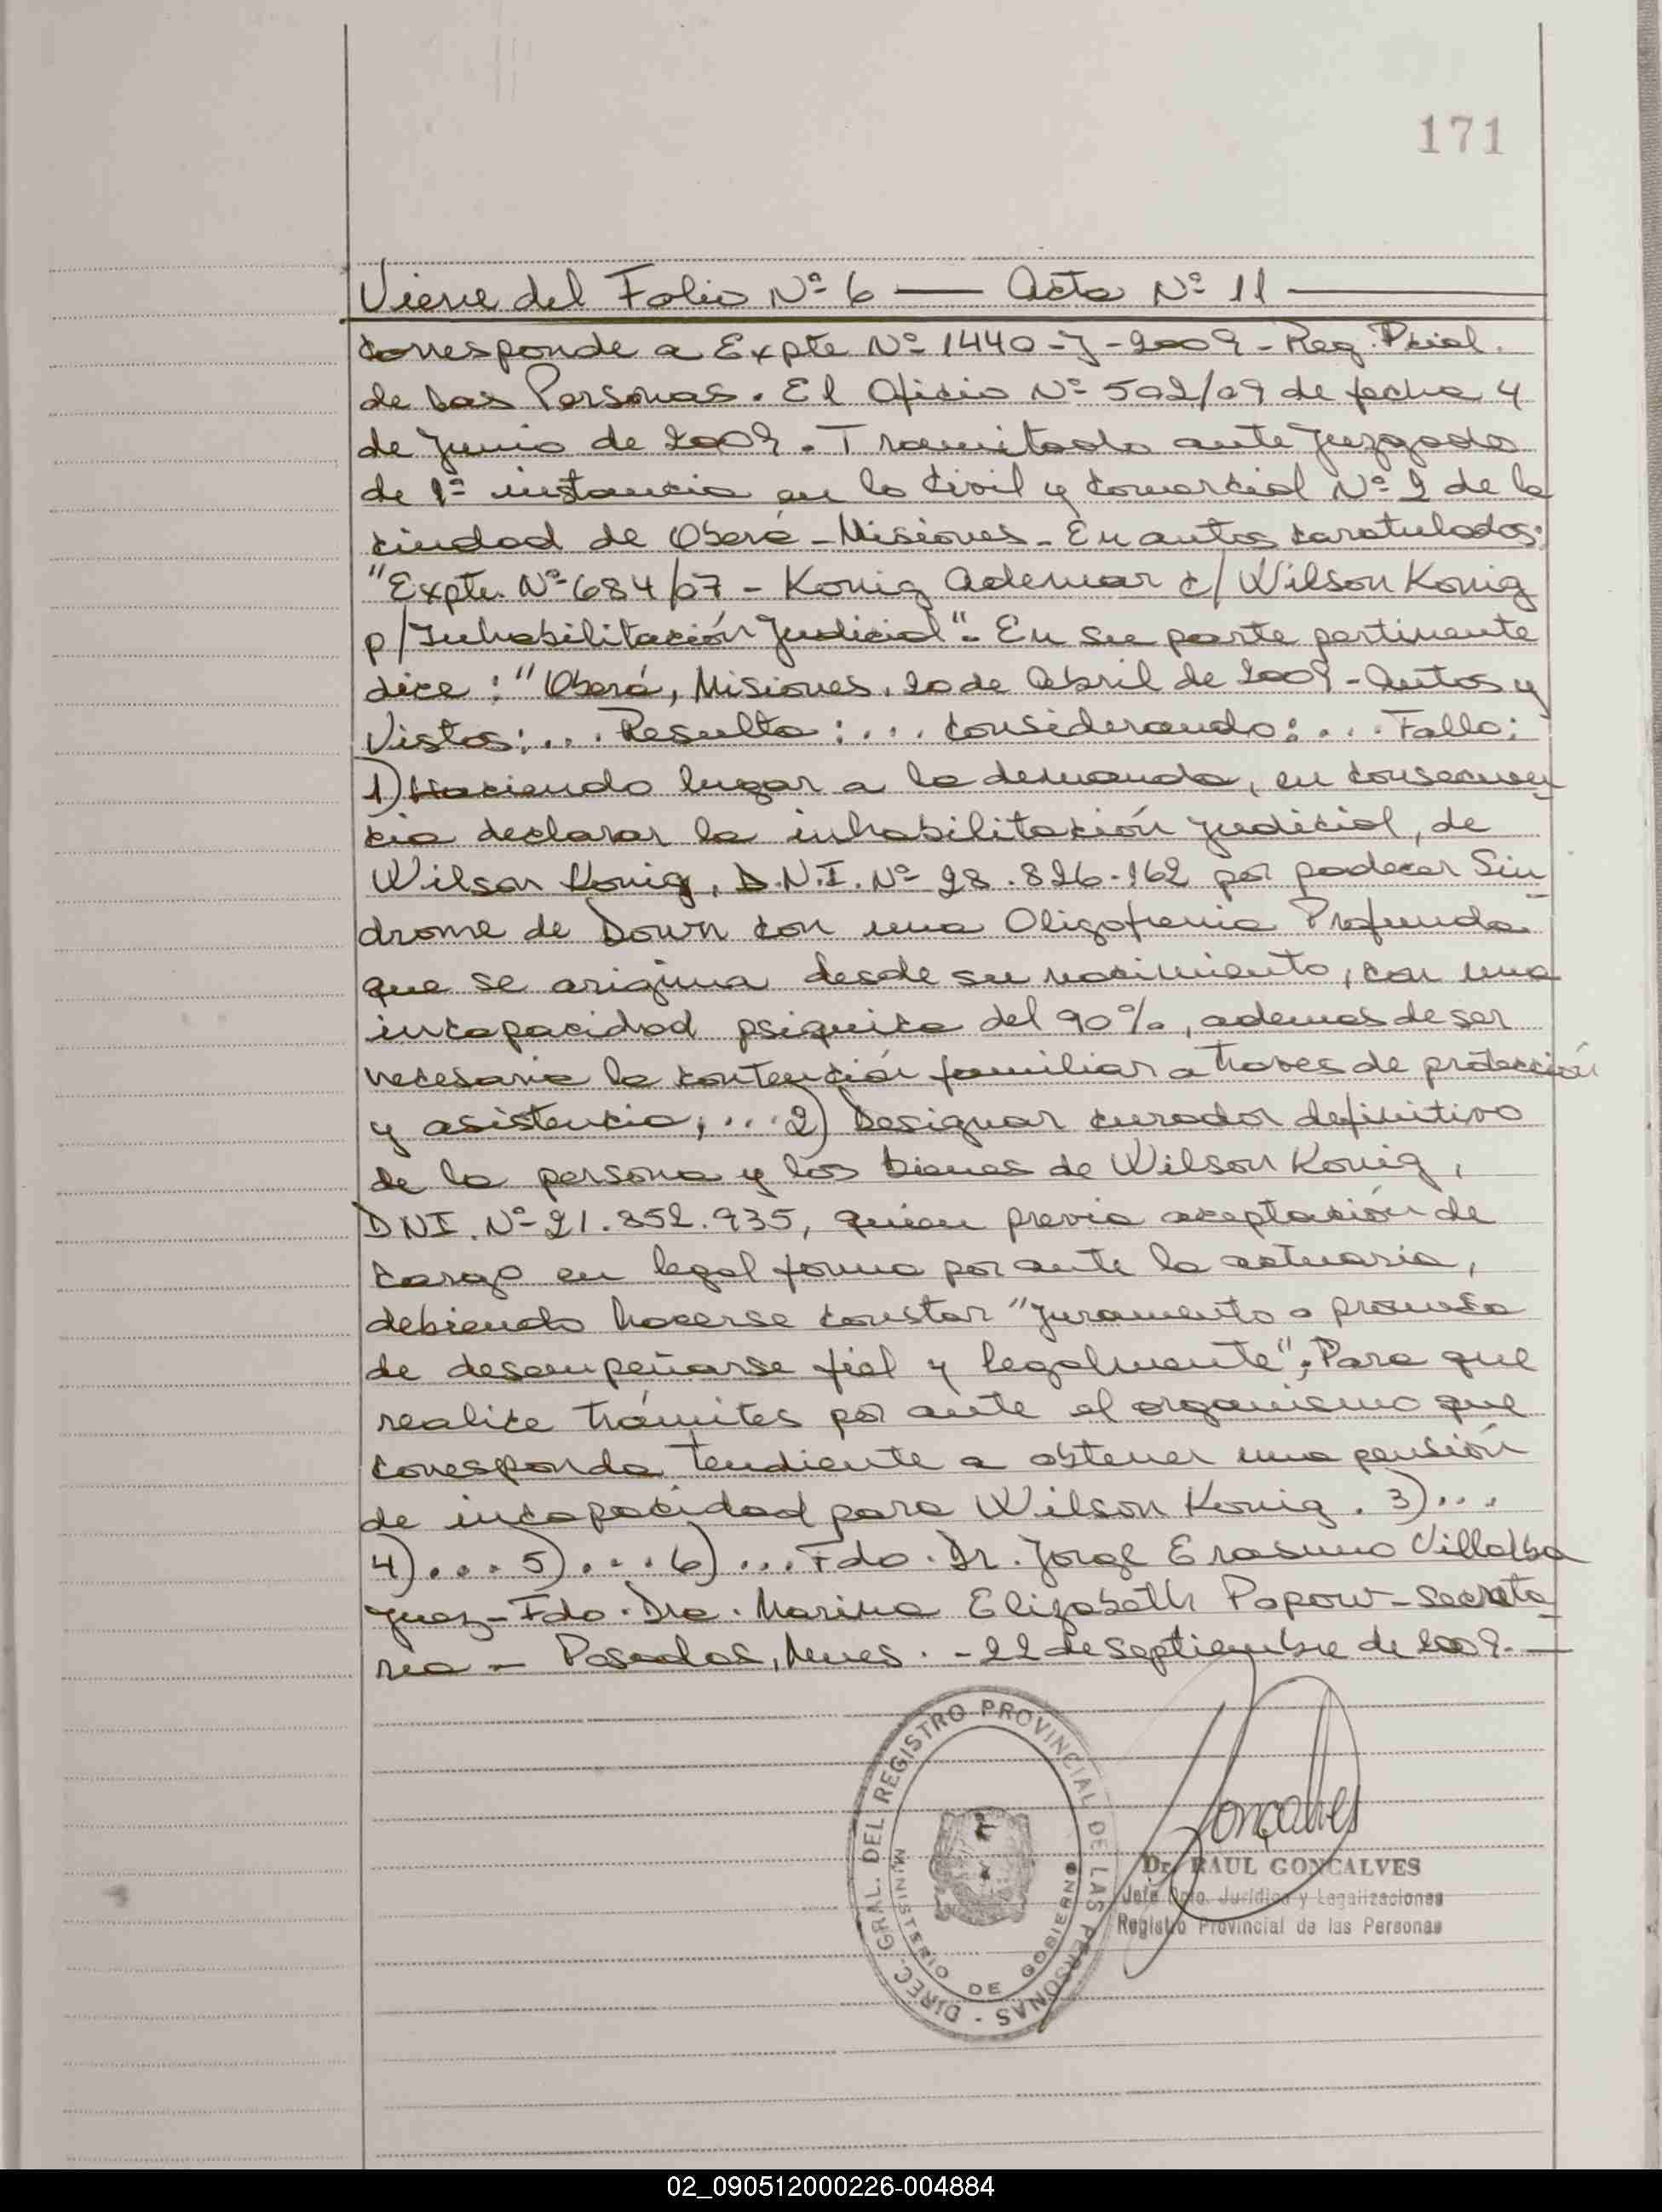 171
Viene del Folio Nº 6 — Acta Nº 11 —
corresponde a Expte Nº 1440-J-2009-Reg. Pcial.
de las Personas. El Oficio Nº 502/09 de fecha 4
de Junio de 2009. Tramitado ante Juzgado
de 1ª instancia en lo Civil y Comercial Nº 2 de la
ciudad de Oberá-Misiones-En autos caratulados:
"Expte. Nº 684/07 - Konig Ademar c/ Wilson Konig
p/Inhabilitación Judicial". En su parte pertinente
dice: "Oberá, Misiones, 20 de Abril de 2009-Autos y
Vistos:... Resulta:... Considerando:... Fallo:
1) Haciendo lugar a la demanda, en consecuen
cia declarar la inhabilitación judicial, de
Wilson Konig, D.N.I. Nº 28.826.162 por padecer Sín
drome de Down con una Oligofrenia Profunda
que se origina desde su nacimiento, con una
incapacidad psiquica del 90%, ademas de ser
necesaria la contención familiar a traves de protección
y asistencia;... 2) Designar curador definitivo
de la persona y los bienes de Wilson Konig,
DNI. Nº 21.852.935, quien previa aceptación de
cargo en legal forma por ante la actuaria,
debiendo hacerse constar "Juramento o promesa
de desempeñarse fiel y legalmente"; Para que
realice trámites por ante el organismo que
corresponda tendiente a obtener una pensión
de incapacidad para Wilson Konig. 3)...
4)... 5)... 6)... Fdo. Dr. Jorge Erasmo Villalba
Juez-Fdo. Dra. Marina Elizabeth Popow-Secreta
ria - Posadas, Mnes. -22 de septiembre de 2009.—
DIREC. GRAL. DEL REGISTRO PROVINCIAL DE LAS PERSONAS -
MINISTERIO DE GOBIERNO
Goncalves
Dr. RAUL GONCALVES
Jefe Dpto. Jurídico y Legalizaciones
Registro Provincial de las Personas
02_090512000226-004884